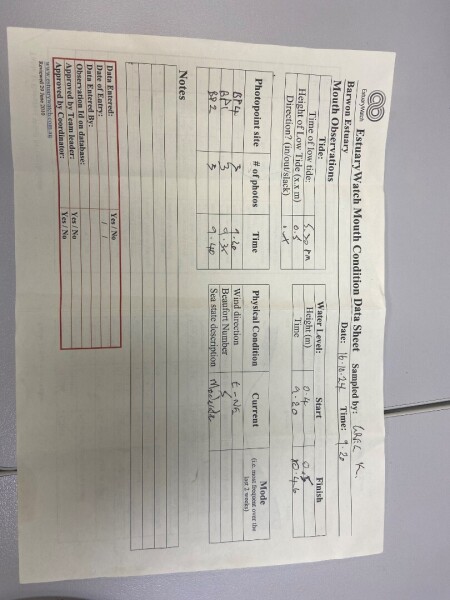 EstuaryWatch
EstuaryWatch Mouth Condition Data Sheet Sampled by: K.
Barwon Estuary Date: 16.12.24 Time: 9.20
Mouth Observations
Tide:
Time of low tide: 5.30 pm
Height of Low Tide (x.x m) 0.5
Direction? (in/out/slack)
Water Level: Start Finish
Height (m) 0.4 0.5
Time 9.20 10.46
Photopoint site # of photos Time
BP4 3 9.20
BP1 3 9.35
BP2 3 9.40
Physical Condition Current Mode
(i.e. most frequent over the last 2 weeks)
Wind direction E-NE
Beaufort Number 5
Sea state description Moderate
Notes
Data Entered: Yes / No
Date of Entry: / /
Data Entered By:
Observation Id on database:
Approved by Team leader: Yes / No
Approved by Coordinator: Yes / No
www.estuarywatch.org.au
Reviewed 29 June 2018